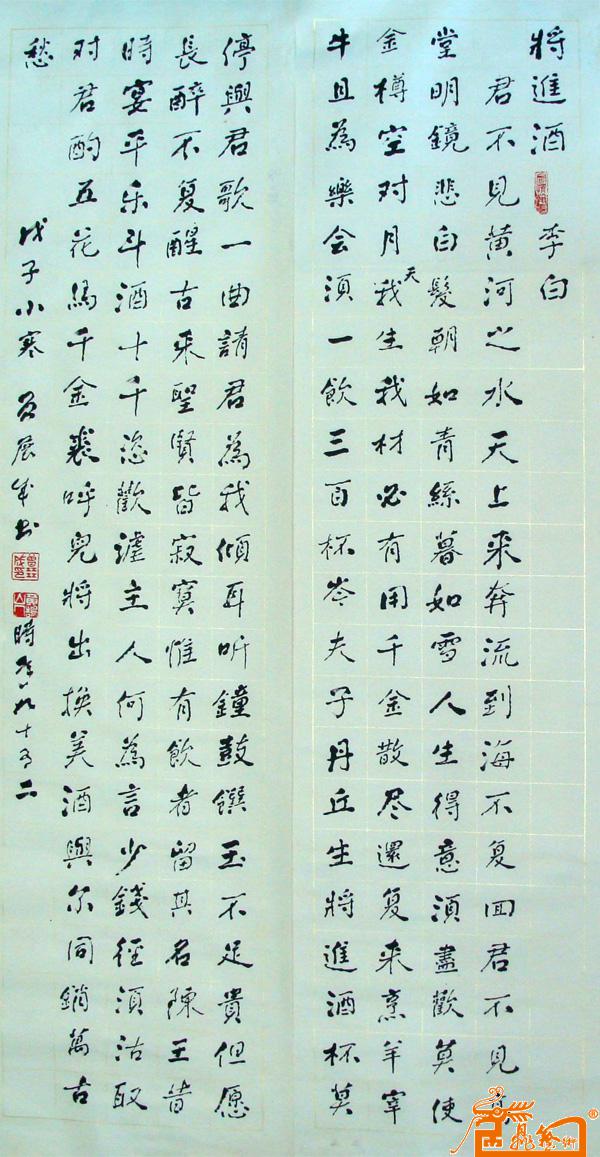 將進酒 李白
君不見黃河之水天上來奔流到海不复回君不見
堂明鏡悲白髮朝如青絲暮如雪人生得意須盡歡莫使
金樽空对月天我生我材必有用千金散尽還复来烹羊宰
牛且為樂会須一飲三百杯岑夫子丹丘生將進酒杯莫
停與君歌一曲請君為我傾耳听鐘鼓饌玉不足貴但愿
長醉不复醒古来聖賢皆寂寞惟有飲者留其名陳王昔
時宴平乐斗酒十千恣歡謔主人何為言少錢徑須沽取
对君酌五花馬千金裘呼兒將出換美酒與尔同銷萬古
愁
戊子小寒 展成书 時年九十有二